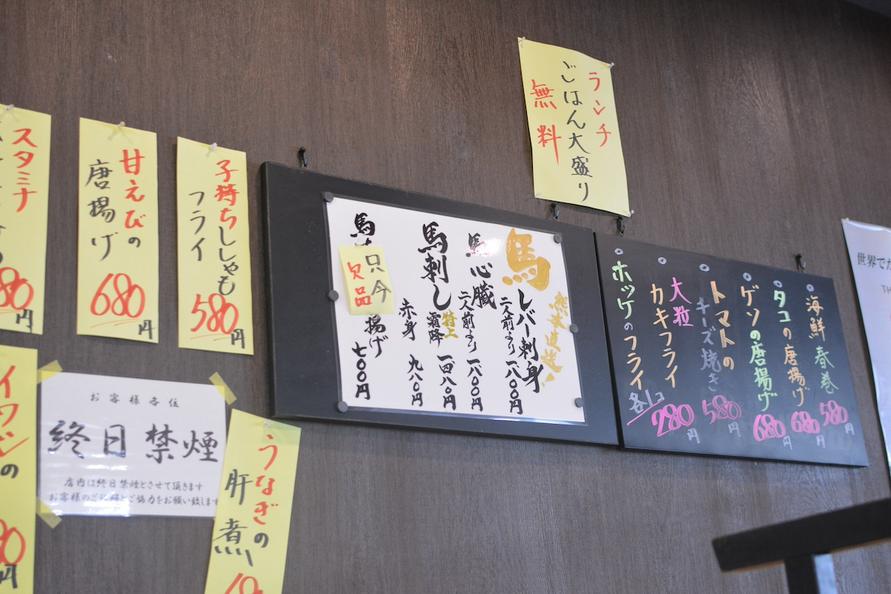 ランチ
ごはん大盛り
無料
スタミナ
80円
甘えびの
唐揚げ
680円
子持ちししゃも
フライ
580円
イワシの
円
お客様各位
終日禁煙
店内は終日禁煙とさせて頂きます
お客様のご理解とご協力をお願い致します
うなぎの
肝煮
馬
熊本直送!
レバ刺身
二人前より 一八〇〇円
馬心臓
二人前より 一八〇〇円
馬刺し
特上
霜降 一四八〇円
赤身 九八〇円
馬
揚げ
七〇〇円
只今
欠品
海鮮春巻
580円
タコの唐揚げ
680円
ゲソの唐揚げ
680円
トマトの
チーズ焼き
580円
大粒
カキフライ
ホッケのフライ
各1コ
280円
世界でか
TH